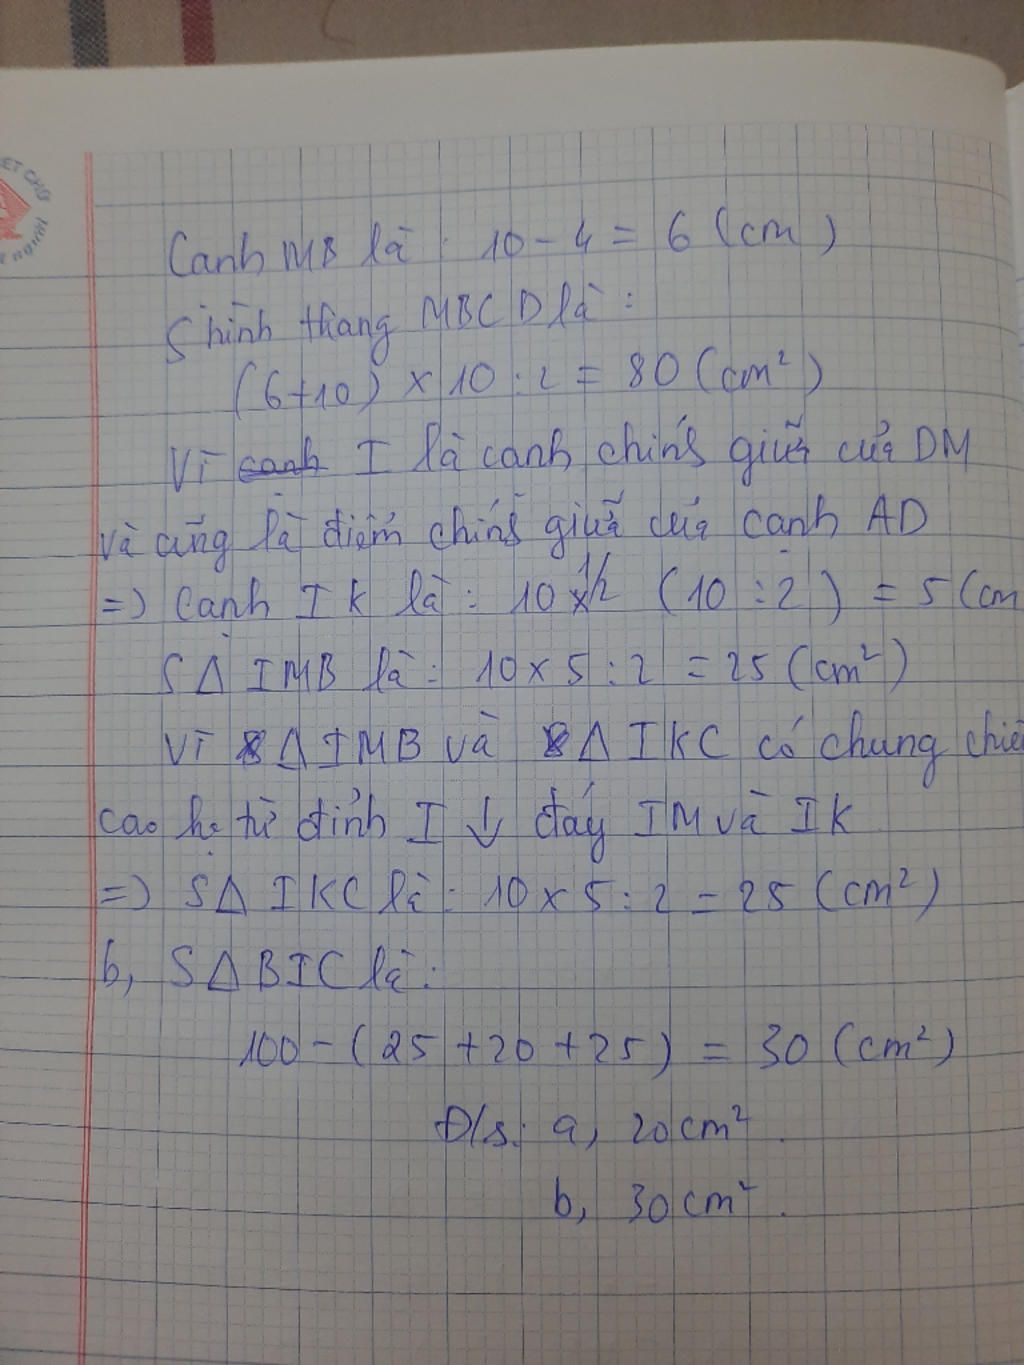 Cạnh MB là : 10 - 4 = 6 (cm)
S hình thang MBCD là :
(6+10) × 10 : 2 = 80 (cm²)
Vì canh I là canh chính giữa của DM
và cũng là điểm chính giữa của cạnh AD
=) Cạnh IK là : 10 × 1/2 (10 : 2) = 5 (cm
SΔ IMB là : 10 × 5 : 2 = 25 (cm²)
Vì Δ IMB và Δ IKC có chung chiề
cao hạ từ đỉnh I ↓ đáy IM và IK
=) SΔ IKC là : 10 × 5 : 2 = 25 (cm²)
b, SΔ BIC là :
100 - (25 + 20 + 25) = 30 (cm²)
Đ/s: a, 20 cm².
b, 30 cm².